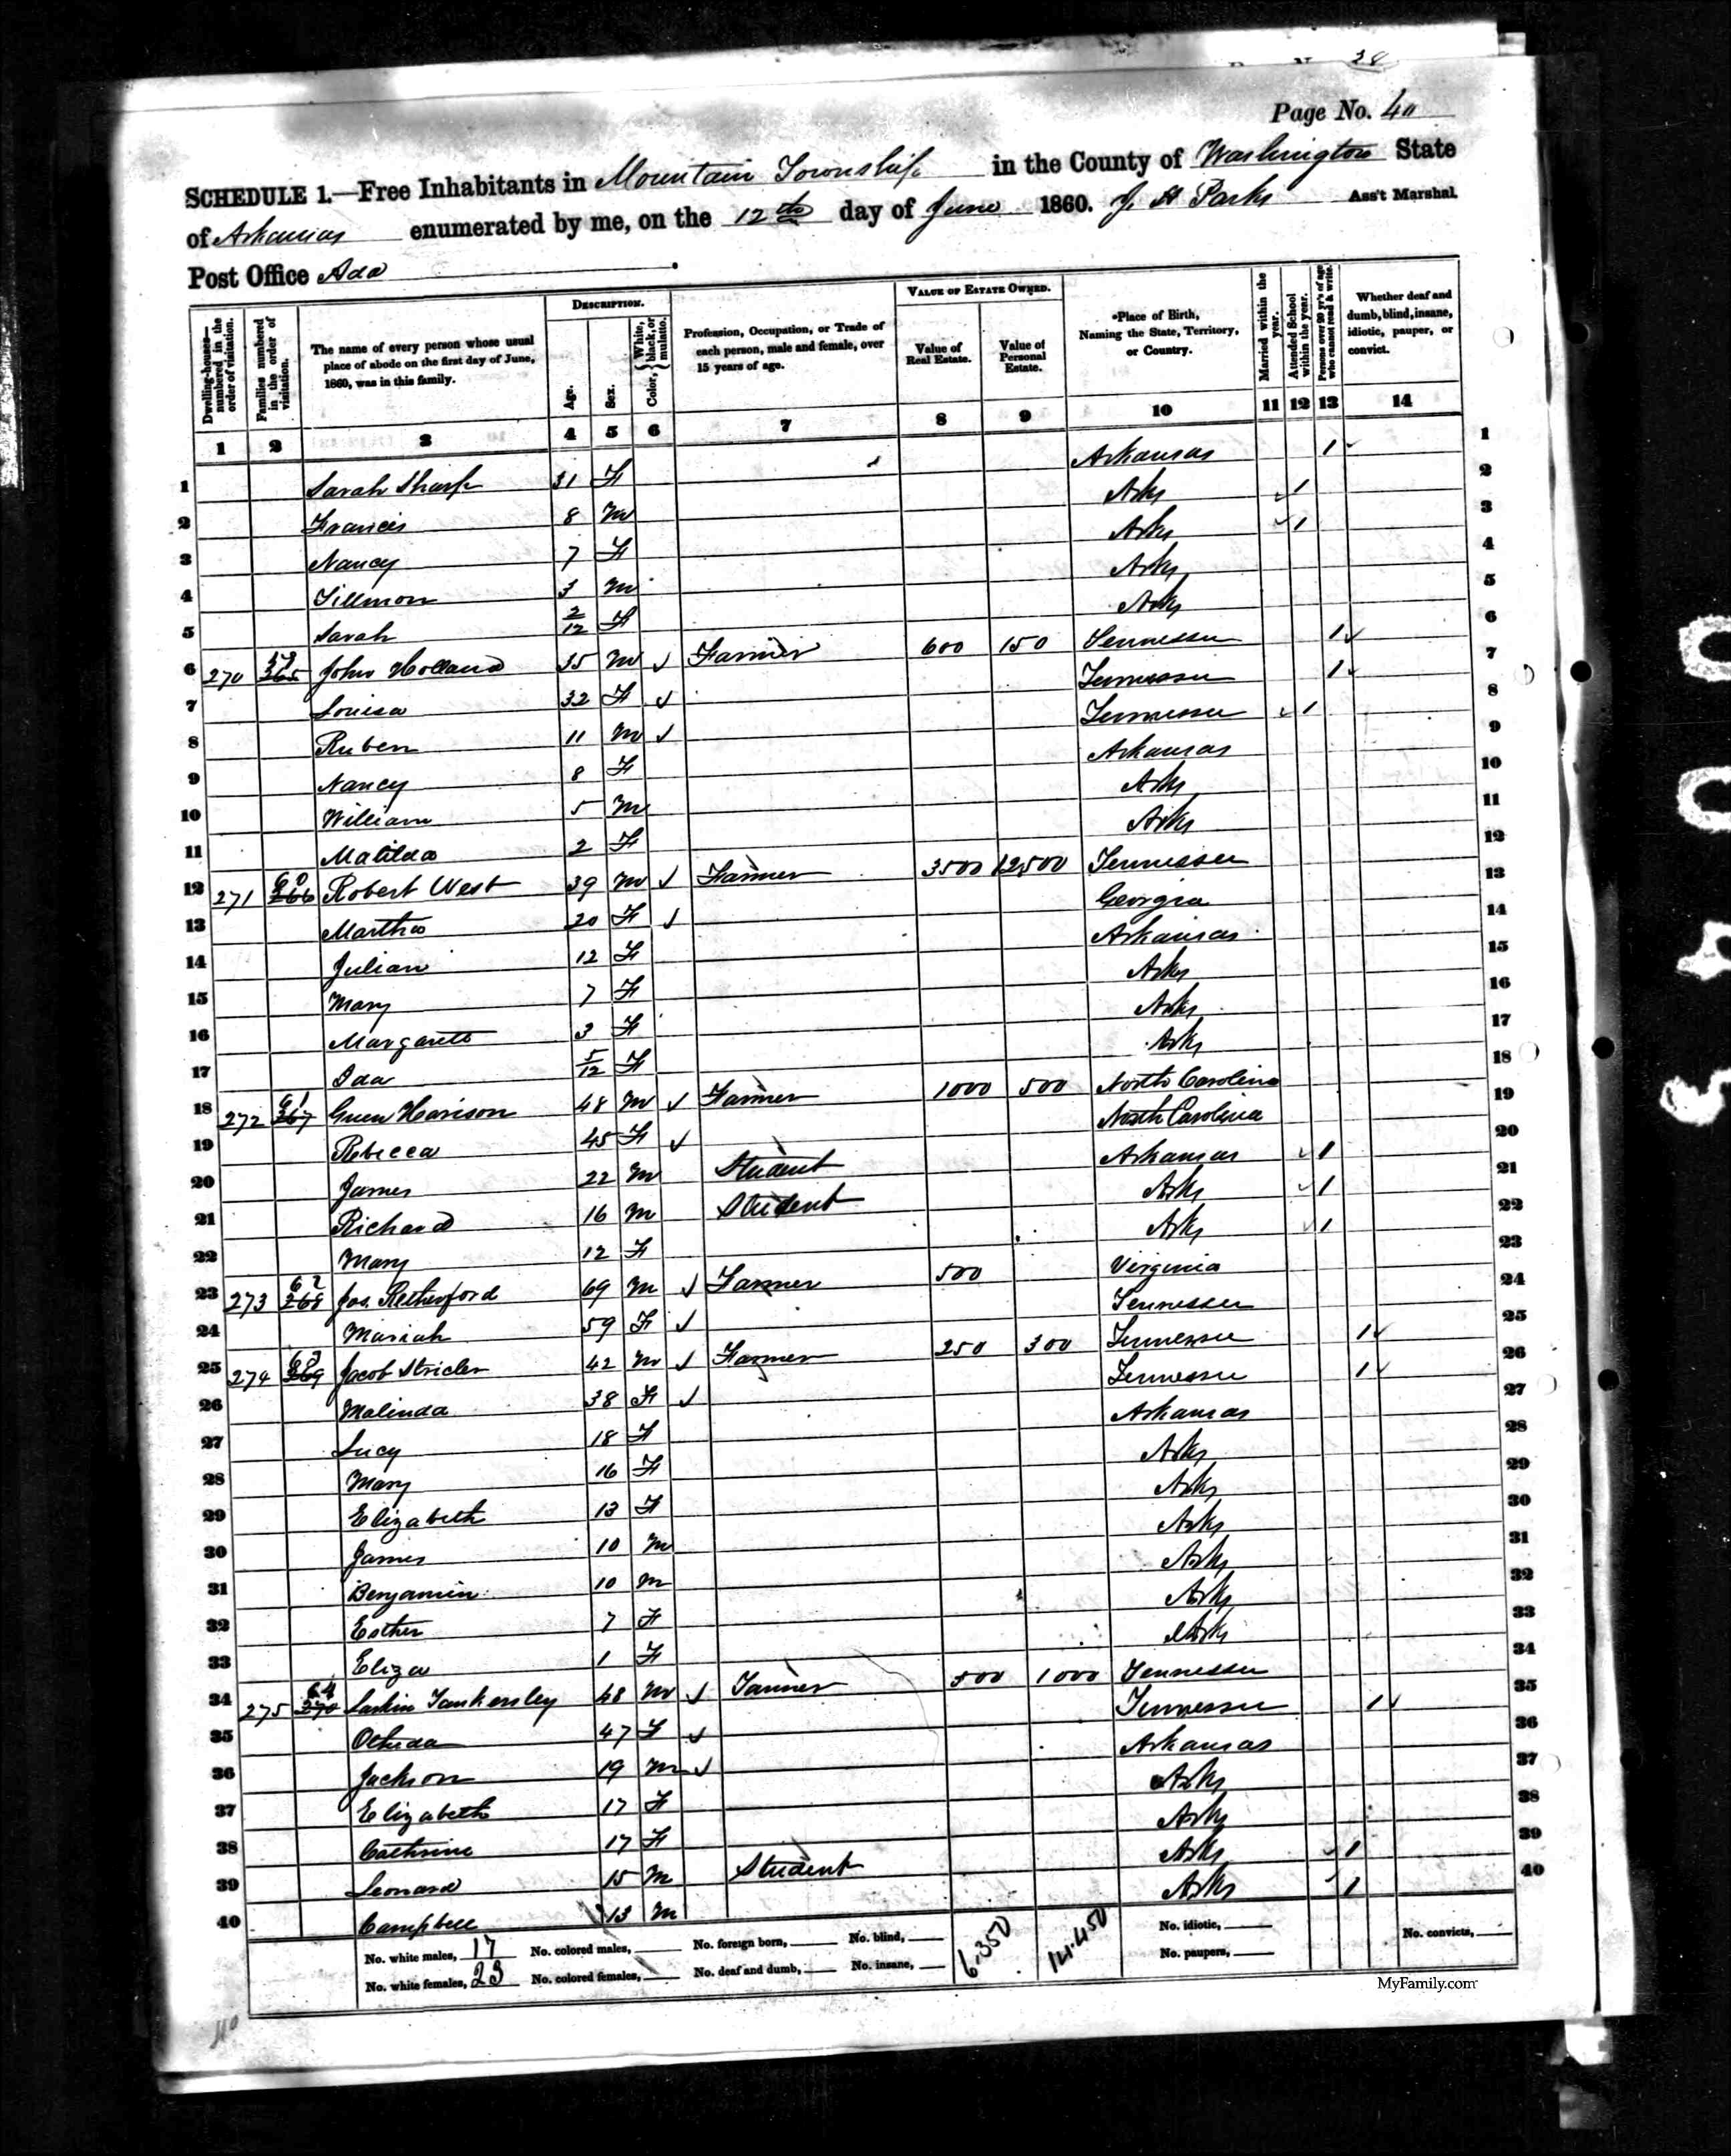 38
Page No. 40
SCHEDULE 1.—Free Inhabitants in Mountain Township in the County of Washington State
of Arkansas enumerated by me, on the 12th day of June 1860. J H Parks Ass't Marshal.
Post Office Ada
Dwelling-houses—numbered in the order of visitation. Families numbered in the order of visitation. The name of every person whose usual place of abode on the first day of June, 1860, was in this family. DESCRIPTION. Age. Sex. Color, {White, black, or mulatto. Profession, Occupation, or Trade of each person, male and female, over 15 years of age. VALUE OF ESTATE OWNED. Value of Real Estate. Value of Personal Estate. Place of Birth, Naming the State, Territory, or Country. Married within the year. Attended School within the year. Persons over 20 y'rs of age who cannot read & write. Whether deaf and dumb, blind, insane, idiotic, pauper, or convict.
1 2 3 4 5 6 7 8 9 10 11 12 13 14
1 Sarah Sharp 31 F Arkansas 1 1
2 Francis 8 M Arks 1 2
3 Nancy 7 F Arks 1 3
4 Tillmon 3 M Arks 4
5 Sarah 2/12 F Arks 5
6 270 265 John Holland 35 M Farmer 600 150 Tennessee 1 6
7 Louisa 32 F Tennessee 1 7
8 Ruben 11 M Tennessee 1 8
9 Nancy 8 F Arkansas 9
10 William 5 M Arks 10
11 Matilda 2 F Arks 11
12 271 60 266 Robert West 39 M Farmer 3500 12,500 Tennessee 12
13 Martha 20 F Georgia 13
14 Julian 12 F Arkansas 14
15 Mary 7 F Arks 15
16 Margarett 3 F Arks 16
17 Ida 5/12 F Arks 17
18 272 61 267 Green Harison 48 M Farmer 1000 500 North Carolina 18
19 Rebecca 45 F North Carolina 19
20 James 22 M Student Arkansas 1 20
21 Richard 16 M Student Arks 1 21
22 Mary 12 F Arks 1 22
23 273 62 268 Jas. Retherford 69 M Farmer 500 Virginia 23
24 Mariah 59 F Tennessee 24
25 274 63 269 Jacob Stricler 42 M Farmer 250 300 Tennessee 1 25
26 Malinda 38 F Tennessee 1 26
27 Lucy 18 F Arkansas 27
28 Mary 16 F Arks 28
29 Elizabeth 13 F Arks 29
30 James 10 M Arks 30
31 Benjamin 10 M Arks 31
32 Esther 7 F Arks 32
33 Eliza 1 F Arks 33
34 275 64 270 Larkin Tankersley 48 M Farmer 500 1000 Tennessee 34
35 47 F Tennessee 1 35
36 Jackson 19 M Arkansas 36
37 Elizabeth 17 F Arks 37
38 Cathrine 17 F Arks 38
39 Leonard 15 M Student Arks 1 39
40 Campbell 13 M Arks 1 40
No. white males, 17 No. colored males, No. foreign born, No. blind, 6,350 14,450 No. idiotic, No. convicts,
No. white females, 23 No. colored females, No. deaf and dumb, No. insane, No. paupers,
MyFamily.com
40